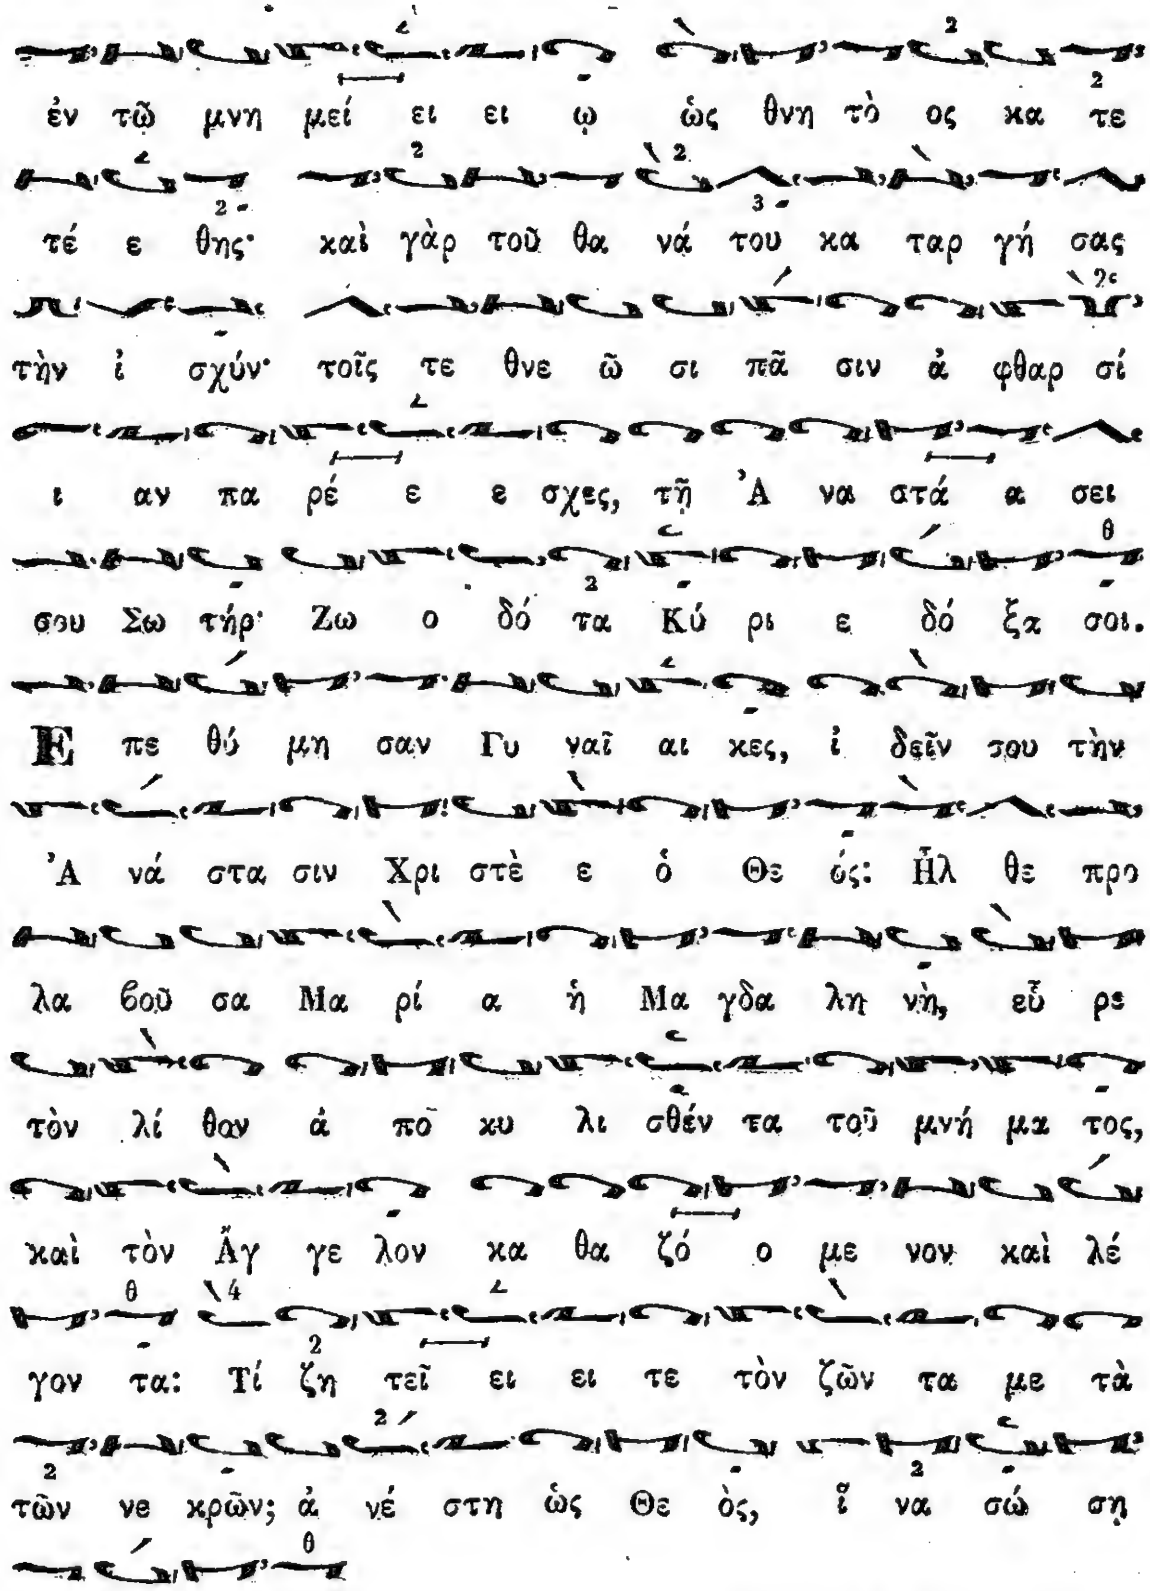 ἐν τῷ μνη μεί ει ει ῳ ὡς θνη τὸ ος κα τε
τέ ε θης· καὶ γὰρ τοῦ θα νά του κα ταρ γή σας
τὴν ἰ σχύν· τοῖς τε θνε ῶ σι πᾶ σιν ἀ φθαρ σί
ι αν πα ρέ ε ε σχες, τῇ Ἀ να στά α σει
σου Σω τήρ· Ζω ο δό τα Κύ ρι ε δό ξα σοι.
Ε πε θύ μη σαν Γυ ναῖ αι κες, ἰ δεῖν σου τὴν
Ἀ νά στα σιν Χρι στὲ ε ὁ Θε ός: Ἦλ θε προ
λα βοῦ σα Μα ρί α ἡ Μα γδα λη νὴ, εὗ ρε
τὸν λί θον ἀ πο κυ λι σθέν τα τοῦ μνή μα τος,
καὶ τὸν Ἄγ γε λον κα θα ζό ο με νον καὶ λέ
γον τα: Τί ζη τεῖ ει ει τε τὸν ζῶν τα με τὰ
τῶν νε κρῶν; ἀ νέ στη ὡς Θε ὸς, ἵ να σώ σῃ